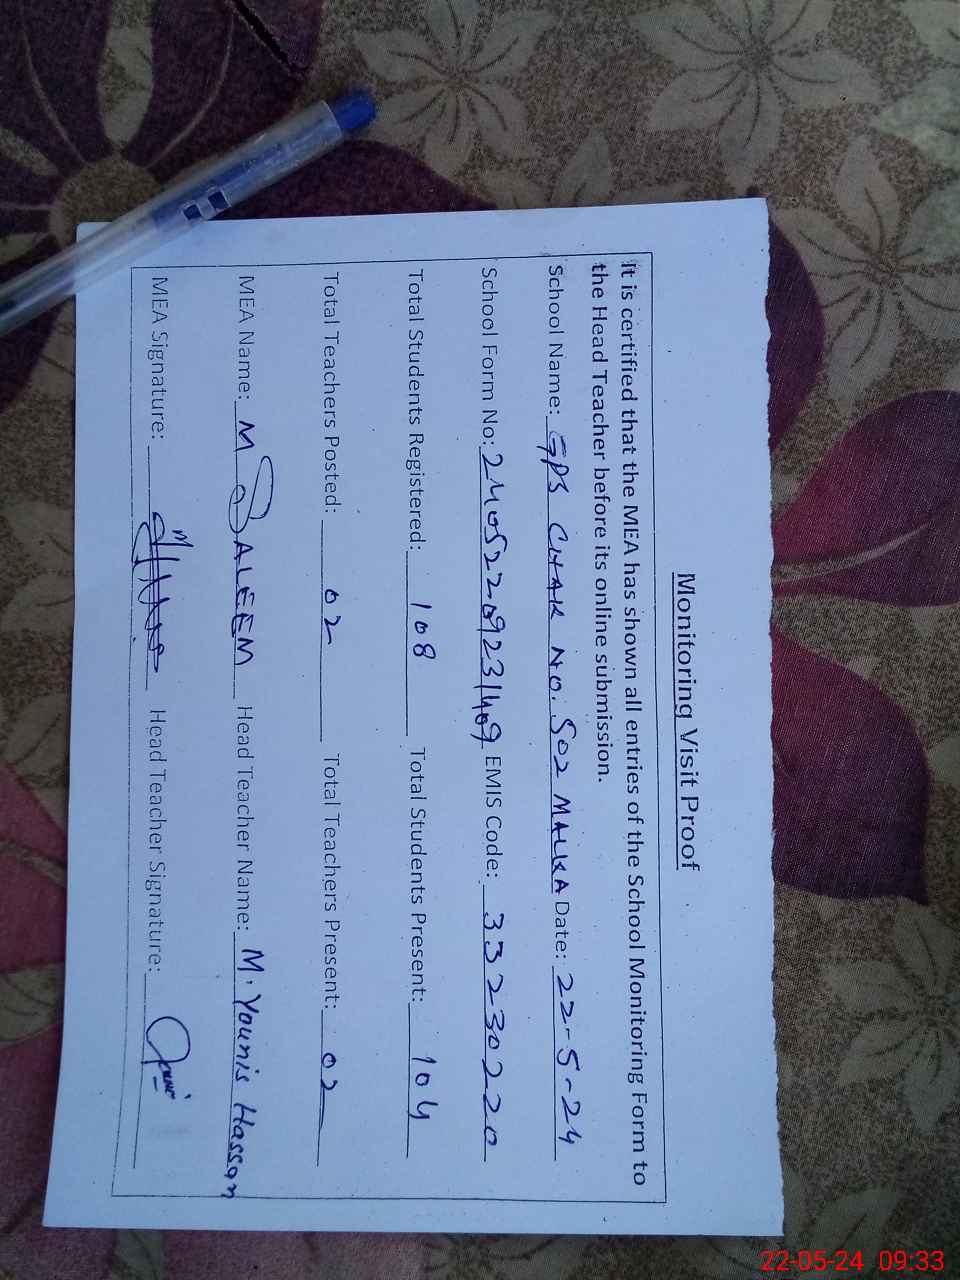 Monitoring Visit Proof
It is certified that the MEA has shown all entries of the School Monitoring Form to
the Head Teacher before its online submission.
School Name: GPS CHAK NO. 502 MALKA Date: 22-5-24
School Form No: 24052209231409 EMIS Code: 33230220
Total Students Registered: 108 Total Students Present: 104
Total Teachers Posted: 02 Total Teachers Present: 02
MEA Name: M SALEEM Head Teacher Name: M. Younis Hassan
MEA Signature: Head Teacher Signature:
22-05-24 09:33